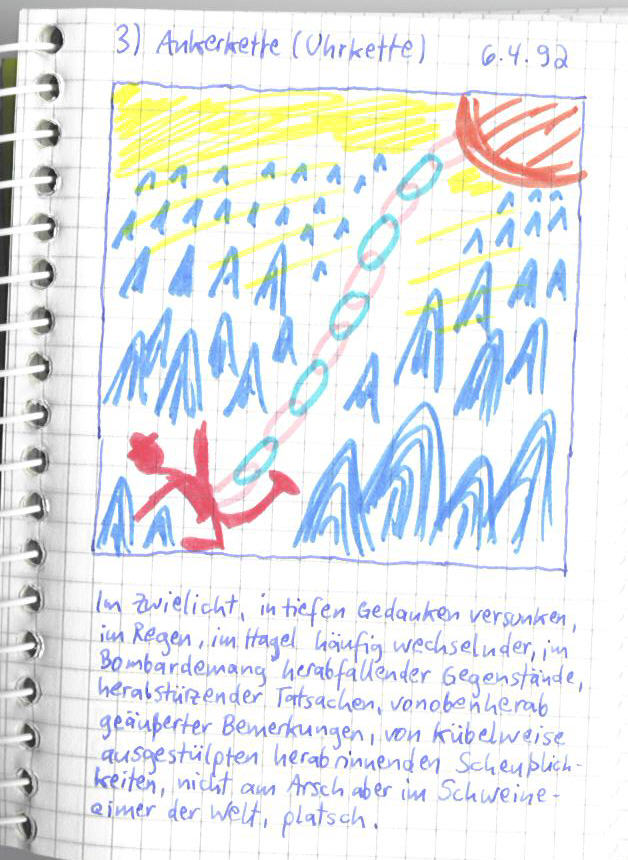 3) Ankerkette (Uhrkette) 6.4.92
Im Zwielicht, in tiefen Gedanken versunken,
im Regen, im Hagel häufig wechselnder, im
Bombardemang herabfallender Gegenstände,
herabstürzender Tatsachen, vonobenherab
geäußerter Bemerkungen, von kübelweise
ausgestülpten herabrinnenden Scheußlich-
keiten, nicht am Arsch aber im Schweine-
eimer der Welt, platsch.